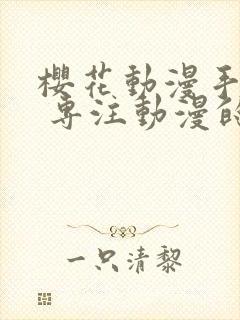 櫻花動漫手
專注動漫
一只清黎